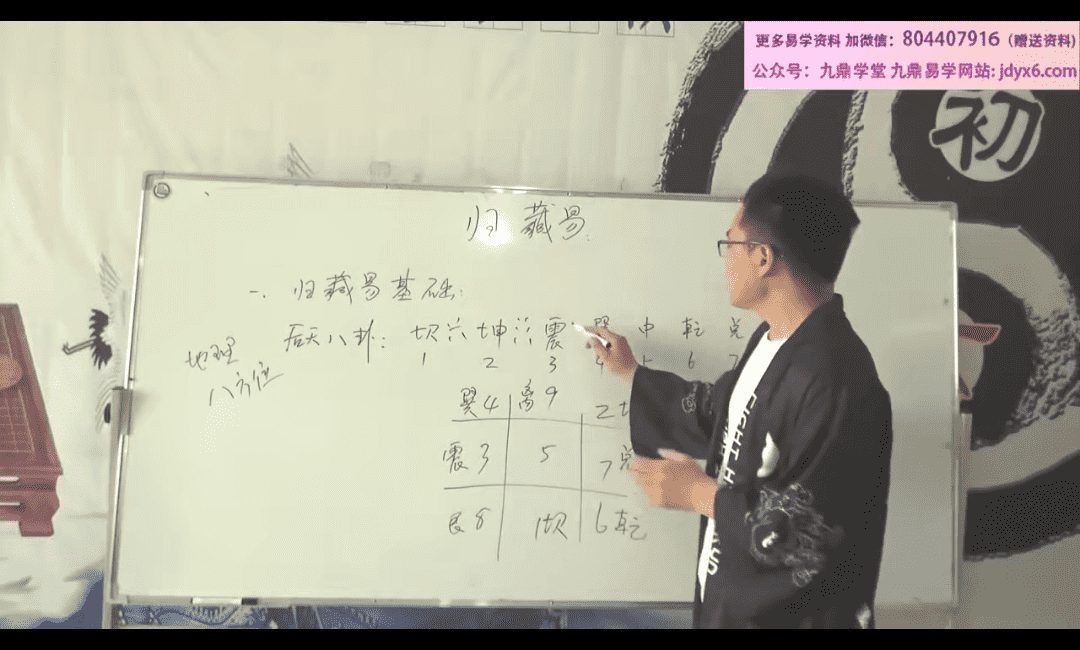 更多易学资料 加微信：804407916（赠送资料）
公众号：九鼎学堂 九鼎易学网站: jdyx6.com
初
归藏易
一、归藏易基础:
后天八卦: 坎 ☵ 坤 ☷ 震 巽 中 乾 兑
1 2 3 4 5 6 7
地理
八方位
巽4 离9 2
震3 5 7兑
艮8 1坎 6乾